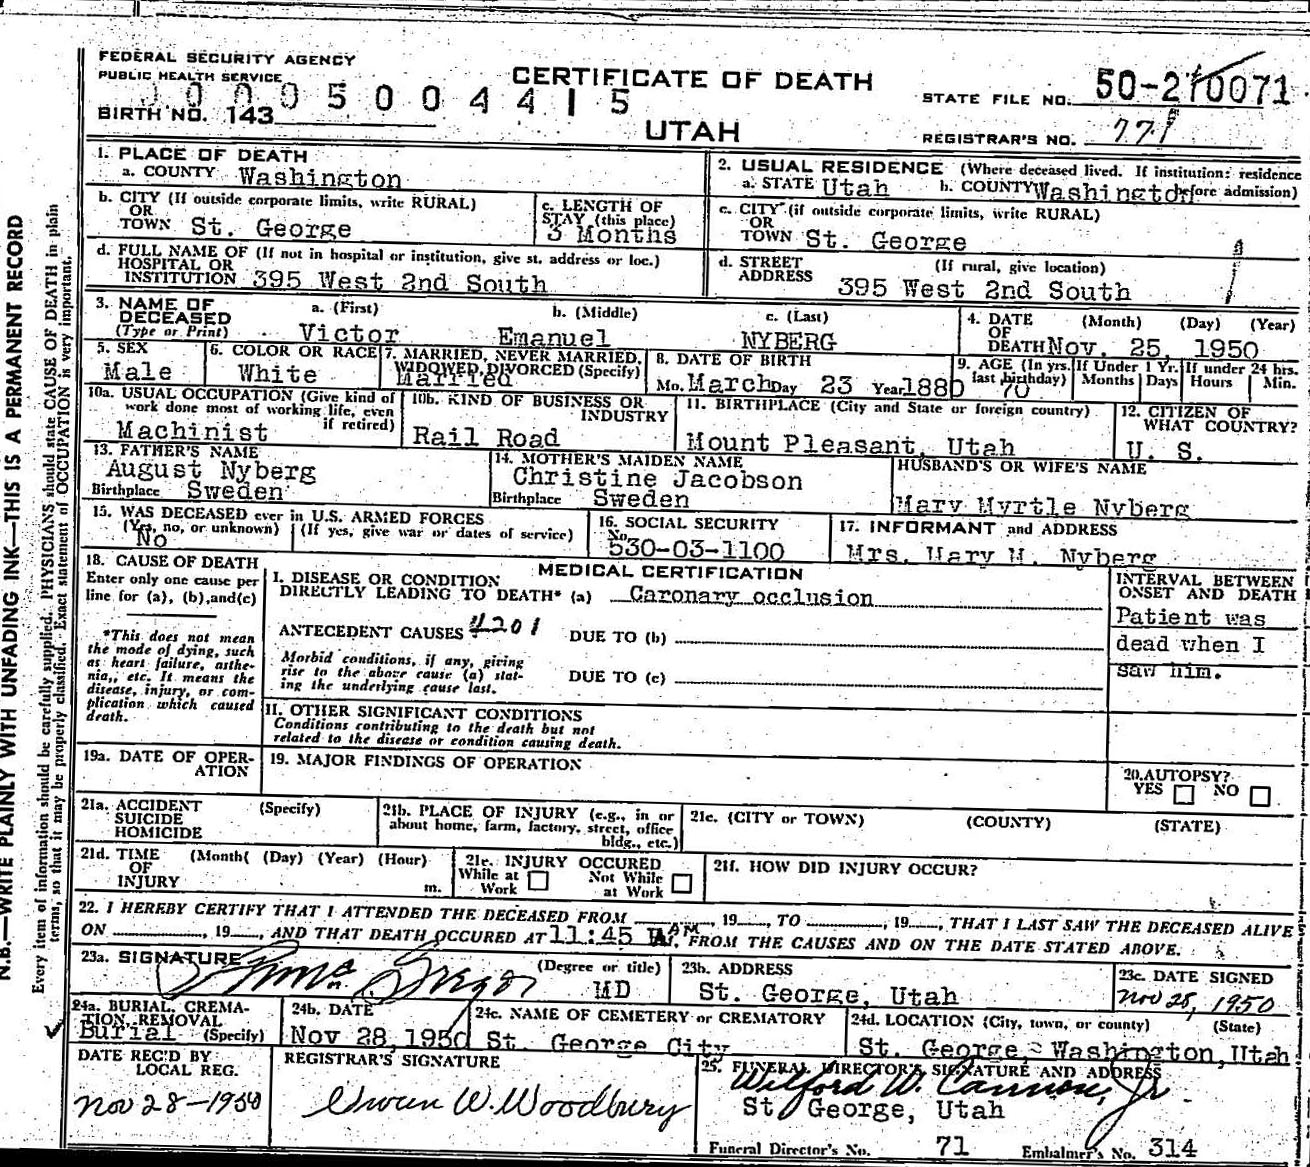 FEDERAL SECURITY AGENCY
PUBLIC HEALTH SERVICE
CERTIFICATE OF DEATH
STATE FILE NO. 50-270071
00005004415
BIRTH NO. 143
UTAH
REGISTRAR'S NO. 771
1. PLACE OF DEATH
a. COUNTY Washington
2. USUAL RESIDENCE (Where deceased lived. If institution: residence
a. STATE Utah b. COUNTY Washington before admission)
b. CITY (If outside corporate limits, write RURAL)
OR
TOWN St. George
c. LENGTH OF
STAY (this place)
3 Months
c. CITY (if outside corporate limits, write RURAL)
OR
TOWN St. George
d. FULL NAME OF (If not in hospital or institution, give st. address or loc.)
HOSPITAL OR
INSTITUTION 395 West 2nd South
d. STREET (If rural, give location)
ADDRESS 395 West 2nd South
3. NAME OF
DECEASED
(Type or Print)
a. (First) b. (Middle) c. (Last)
Victor Emanuel NYBERG
4. DATE (Month) (Day) (Year)
OF
DEATH Nov. 25, 1950
5. SEX
Male
6. COLOR OR RACE
White
7. MARRIED, NEVER MARRIED,
WIDOWED, DIVORCED (Specify)
Married
8. DATE OF BIRTH
Mo. March Day 23 Year 1880
9. AGE (In yrs. last birthday) 70
If Under 1 Yr. Months Days
If under 24 hrs. Hours Min.
10a. USUAL OCCUPATION (Give kind of
work done most of working life, even
if retired)
Machinist
10b. KIND OF BUSINESS OR
INDUSTRY
Rail Road
11. BIRTHPLACE (City and State or foreign country)
Mount Pleasant, Utah
12. CITIZEN OF
WHAT COUNTRY?
U. S.
13. FATHER'S NAME
August Nyberg
Birthplace Sweden
14. MOTHER'S MAIDEN NAME
Christine Jacobson
Birthplace Sweden
HUSBAND'S OR WIFE'S NAME
Mary Myrtle Nyberg
15. WAS DECEASED ever in U.S. ARMED FORCES
(Yes, no, or unknown) (If yes, give war or dates of service)
No
16. SOCIAL SECURITY
No.
530-03-1100
17. INFORMANT and ADDRESS
Mrs. Mary M. Nyberg
18. CAUSE OF DEATH
Enter only one cause per
line for (a), (b), and (c)
*This does not mean
the mode of dying, such
as heart failure, asthe-
nia,, etc. It means the
disease, injury, or com-
plication which caused
death.
MEDICAL CERTIFICATION
I. DISEASE OR CONDITION
DIRECTLY LEADING TO DEATH* (a) Caronary occlusion
ANTECEDENT CAUSES 4201 DUE TO (b)
Morbid conditions, if any, giving
rise to the above cause (a) stat-
ing the underlying cause last.
DUE TO (c)
II. OTHER SIGNIFICANT CONDITIONS
Conditions contributing to the death but not
related to the disease or condition causing death.
INTERVAL BETWEEN
ONSET AND DEATH
Patient was
dead when I
saw him.
19a. DATE OF OPER-
ATION
19. MAJOR FINDINGS OF OPERATION
20. AUTOPSY?
YES NO
21a. ACCIDENT (Specify)
SUICIDE
HOMICIDE
21b. PLACE OF INJURY (e.g., in or
about home, farm, factory, street, office
bldg., etc.)
21c. (CITY or TOWN) (COUNTY) (STATE)
21d. TIME (Month( (Day) (Year) (Hour)
OF
INJURY m.
21e. INJURY OCCURED
While at Work Not While at Work
21f. HOW DID INJURY OCCUR?
22. I HEREBY CERTIFY THAT I ATTENDED THE DECEASED FROM , 19 , TO , 19 , THAT I LAST SAW THE DECEASED ALIVE
ON , 19 , AND THAT DEATH OCCURED AT 11:45 AM, FROM THE CAUSES AND ON THE DATE STATED ABOVE.
23a. SIGNATURE (Degree or title)
MD
23b. ADDRESS
St. George, Utah
23c. DATE SIGNED
Nov 28, 1950
24a. BURIAL, CREMA-
TION, REMOVAL
Burial (Specify)
24b. DATE
Nov 28, 1950
24c. NAME OF CEMETERY or CREMATORY
St. George City
24d. LOCATION (City, town, or county) (State)
St. George, Washington, Utah
DATE REC'D BY
LOCAL REG.
Nov 28-1950
REGISTRAR'S SIGNATURE
Owen W. Woodbury
25. FUNERAL DIRECTOR'S SIGNATURE AND ADDRESS
Wilford W. Cannon, Jr
St George, Utah
Funeral Director's No. 71 Embalmer's No. 314
N.B.—WRITE PLAINLY WITH UNFADING INK—THIS IS A PERMANENT RECORD
Every item of information should be carefully supplied. PHYSICIANS should state CAUSE OF DEATH in plain
terms, so that it may be properly classified. Exact statement of OCCUPATION is very important.